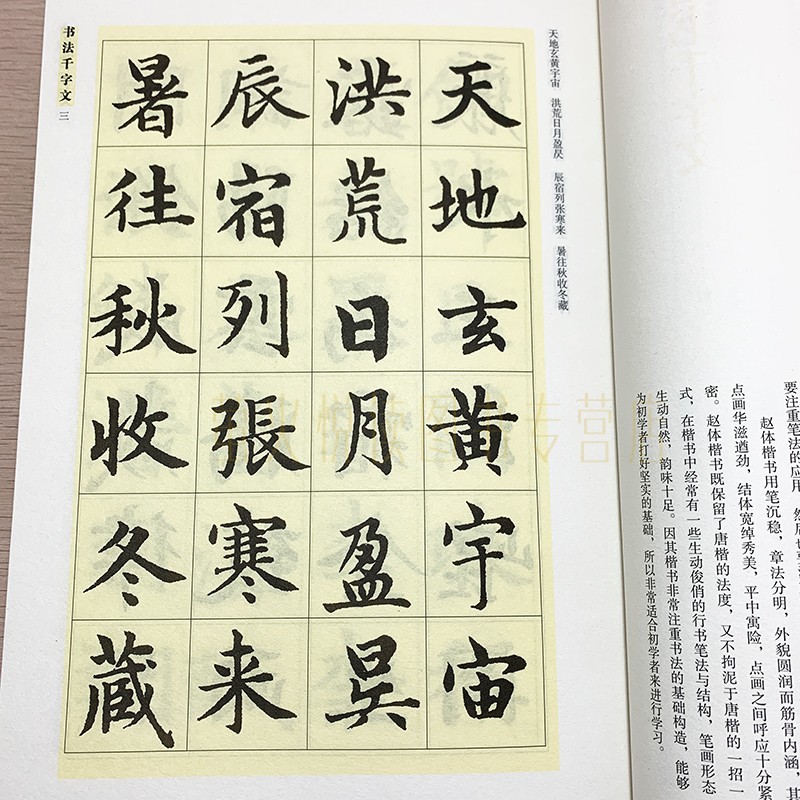 要注重笔法的应用，
赵体楷书用笔沉稳，章法分明，外貌圆润而筋骨内涵，其
点画华滋遒劲，结体宽绰秀美，平中寓险，点画之间呼应十分紧
密。赵体楷书既保留了唐楷的法度，又不拘泥于唐楷的一招一
式，在楷书中经常有一些生动俊俏的行书笔法与结构，笔画形态
生动自然、韵味十足。因其楷书非常注重书法的基础构造，能够
为初学者打好坚实的基础，所以非常适合初学者来进行学习。
天地玄黄宇宙 洪荒日月盈昃 辰宿列张寒来 暑往秋收冬藏
天地玄黄宇宙
洪荒日月盈昃
辰宿列張寒来
暑往秋收冬藏
书法千字文
三
专营